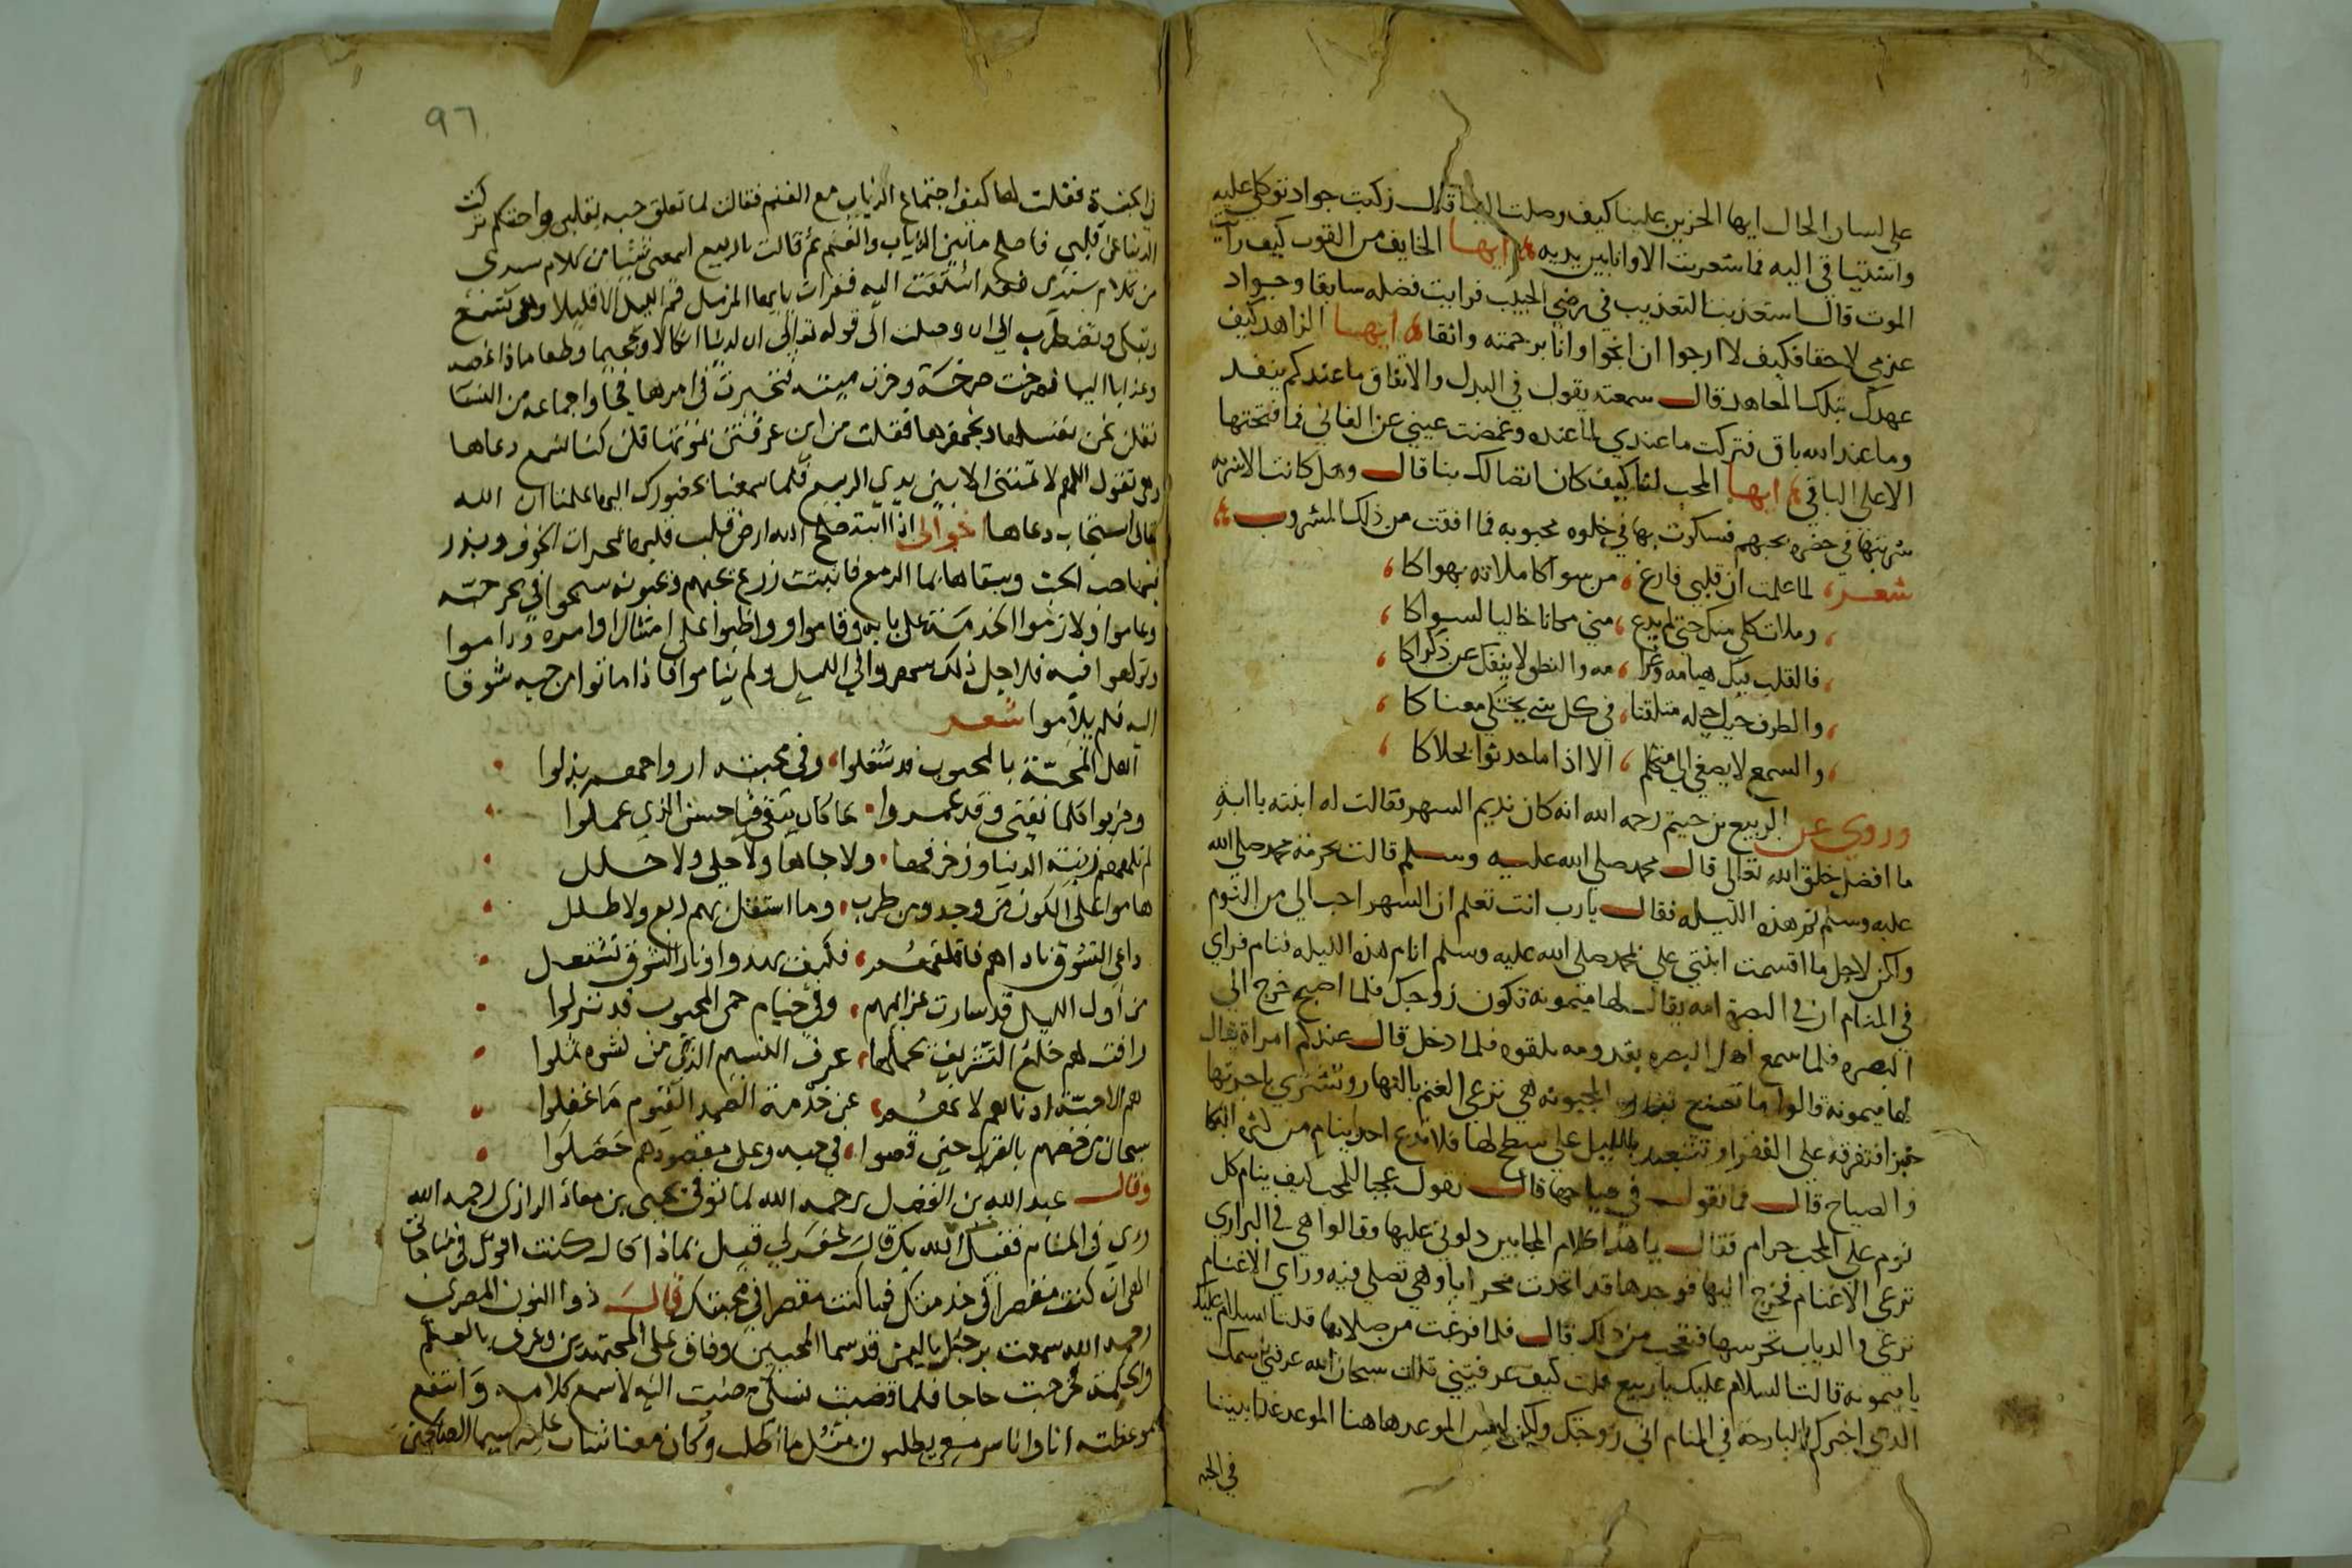 على لسان الحال ايها الحزين علينا كيف وصلت الينا قال ركبت جواد توكلي عليه
واشتياقي اليه فما شعرت الا وانا بين يديه ايها الخايف من القوت كيف رايت
الموت قال استعذبنا التعذيب في رضي الحبيب فرايت فضله سابقا وجواد
عزمي لاحقا فكيف لا ارجوا ان انجوا وانا برحمته واثقا ايها الزاهد كيف
عهدك بتلك المعاهد قال سمعته يقول في البدل والاتفاق ما عندكم ينفد
وما عند الله باق فتركت ما عندي لما عنده وغمضت عيني عن الفاني فما فتحتها
الا على الباقي ايها المحب لنا كيف كان اتصالك بنا قال وهل كانت الا شربه
شربتها في حضره محبهم فسكرت بها في خلوه محبوبه فما افقت من ذلك المشروب
شعر لما علمت ان قلبي فارغ من سواكا ملاته بهواكا
وملات كلي منك حتي لم يدع مني مكانا خاليا لسواكا
فالقلب فيك هيامه وغرا مه والنطق لا ينفك عن ذكراكا
والطرف حيث اجيله متلفتا في كل شي يجتلي معناكا
والسمع لا يصغي الي متكلم الا اذا ما حدثوا بحلاكا
وروي عن الربيع بن خيثم رحمه الله انه كان نديم السهر فقالت له ابنته يا ابه
ما افضل خلق الله تعالى قال محمد صلى الله عليه وسلم قالت بحرمة محمد صلى الله
عليه وسلم نم هذه الليله فقال يارب انت تعلم ان السهر احب الي من النوم
ولكن لاجل ما اقسمت ابنتي علي بمحمد صلى الله عليه وسلم انام هذه الليله فنام فراي
في المنام ان في البصرة امه يقال لها ميمونه تكون زوجك فلما اصبح خرج الي
البصره فلما سمع اهل البصره بقدومه تلقوه فلما دخل قال عندكم امراة يقال
لها ميمونه قالوا ما تصنع بهذه المجنونه هي ترعي الغنم بالنهار وتشتري باجرتها
خبزا فتفرقه على الفقرا وتصعد بالليل علي سطح لها فلا تدع احدا ينام من كثره البكا
والصياح قال فما تقول في صياحها قال تقول عجبا للمحب كيف ينام كل
نوم على المحب حرام فقال ما هذا كلام المجانين دلوني عليها وقالوا هي في البراري
ترعي الاغنام فخرج اليها فوجدها قد اتخذت محرابا وهي تصلي فيه وراي الاغنام
ترعي والدياب تحرسها فتعجب من ذلك قال فلما فرغت من صلاتها قلت السلام عليك
يا ميمونه قالت السلام عليك يا ربيع قلت كيف عرفتيني قالت سبحان الله عرفني اسمك
الذي اخبرك البارحه في المنام اني زوجتك ولكن ليس الموعد هاهنا الموعد غدا بيننا
في الجنه
٩٦
في الجنة فقلت لها كيف اجتماع الذياب مع الغنم فقالت لما تعلق حبه بقلبي تركت
الدنيا عن قلبي فاصلح ما بين الذياب والغنم ثم قالت يا ربيع اسمعني شيئا من كلام سيدي
من كلام سيدي فقد اشتقت اليه فقرات يا ايها المزمل قم الليل الا قليلا وهي تسمع
وتبكي وتضطرب الي ان وصلت الى قوله تعالى ان لدينا انكالا وجحيما وطعاما ذا غصه
وعذابا اليما فصرخت صرخة وخرت ميته فتحيرت في امرها فجاوا جماعه من النسا
نقلن نحن نغسلها ونجهزها فقلت من اين عرفتن موتها قلن كنا نسمع دعاها
وهي تقول اللهم لا تمتني الا بين يدي الربيع فلما سمعنا بحضورك اليها علمنا ان الله
تعالى استجاب دعاها اخواني اذا اصلح الله ارض قلب قلبها بمحراث الخوف وبذر
فيها حب الحب وسقاها بما الدمع فانبتت زرع يحبهم ويحبونه سبحوا في بحر حبه
وعاموا ولازموا الخدمة على بابه وقاموا وواظبوا على امتثال اوامره وداموا
وتولهوا فيه فلاجل ذلك سهروا الي الليل ولم يناموا فاذا ماتوا من حبه شوقا
اليه فلم يلاموا شعر
اهل المحبّة بالمحبوب قد شغلوا وفي محبته ارواحهم بذلوا
وخربوا كلما يفنى وقد عمروا ما كان يبقى فيا حسن الذي عملوا
لم تلههم زينة الدنيا وزخرفها ولا جناها ولا حلي ولا حلل
هاموا على الكون من وجد ومن طرب وما استقل بهم ربع ولا طلل
داعي التشوق ناداهم فاقلقهم فكيف يهدوا ونار الشوق تشتعل
من اول الليل قد سارت عزايمهم وفي خيام حمى المحبوب قد نزلوا
وافت لهم خلع التشريف يحملها عرف النسيم الذي من نشره ثملوا
هم الاحبّة ادناهم لانهم عن خدمة الصمد القيوم ما غفلوا
سبحان من خصهم بالقرب حين قضوا في حبه وعلى مقصودهم حصلوا
وقال عبد الله بن الفضل رحمه الله لما توفي يحيى بن معاذ الرازي رحمه الله
روي في المنام فقيل ما فعل الله بك قال غفر لي قيل بماذا قال كنت اقول في مناجاتي
الهي ان كنت مقصرا في خدمتك فما كنت مقصرا في محبتك قال ذو النون المصري
رحمه الله سمعت برجل باليمن قد سما المحبين وفاق على المجتهدين وعرف بالعلم
والحكمة فخرجت حاجا فلما قضيت نسكي مضيت اليه لاسمع كلامه وانتفع
بموعظته انا واناس معي يطلبون مثل ما اطلب وكان معنا شاب عليه سيما الصالحين